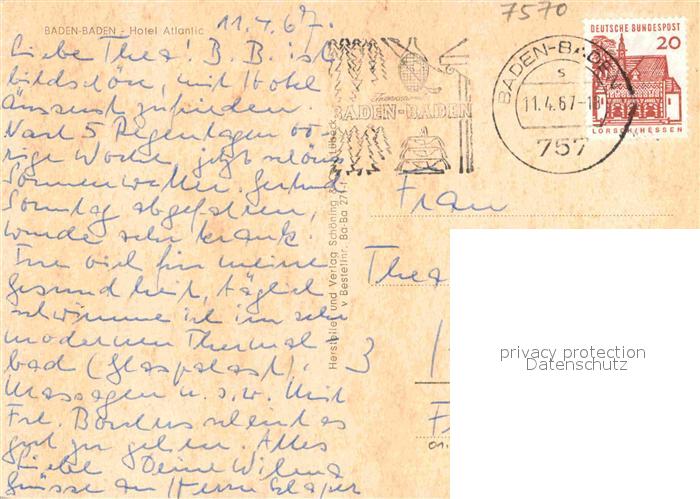 BADEN-BADEN - Hotel Atlantic
11.4.67.
7570
Liebe Thea! B.B. ist
bildschön, mit Hotel
äusserst zufrieden.
Nach 5 Regentagen vo-
rige Woche, jetzt schönes
Sonnenwetter. Gertrud
Sonntag abgefahren,
wurde sehr krank.
Tue viel für meine
Gesundheit, täglich
schwimme ich im sehr
modernen Thermal
bad (Glaspalast),
Massagen u.s.w. Mit
Frl. scheint es
gut zu gehen. Alles
Liebe Deine
Grüsse an Herrn
Hersteller und Verlag Schöning
Bestellnr. Ba-Ba
BADEN-BADEN
BADEN-BADEN
s
11.4.67-18
757
DEUTSCHE BUNDESPOST
20
LORSCH/HESSEN
Frau
Thea
3
privacy protection
Datenschutz